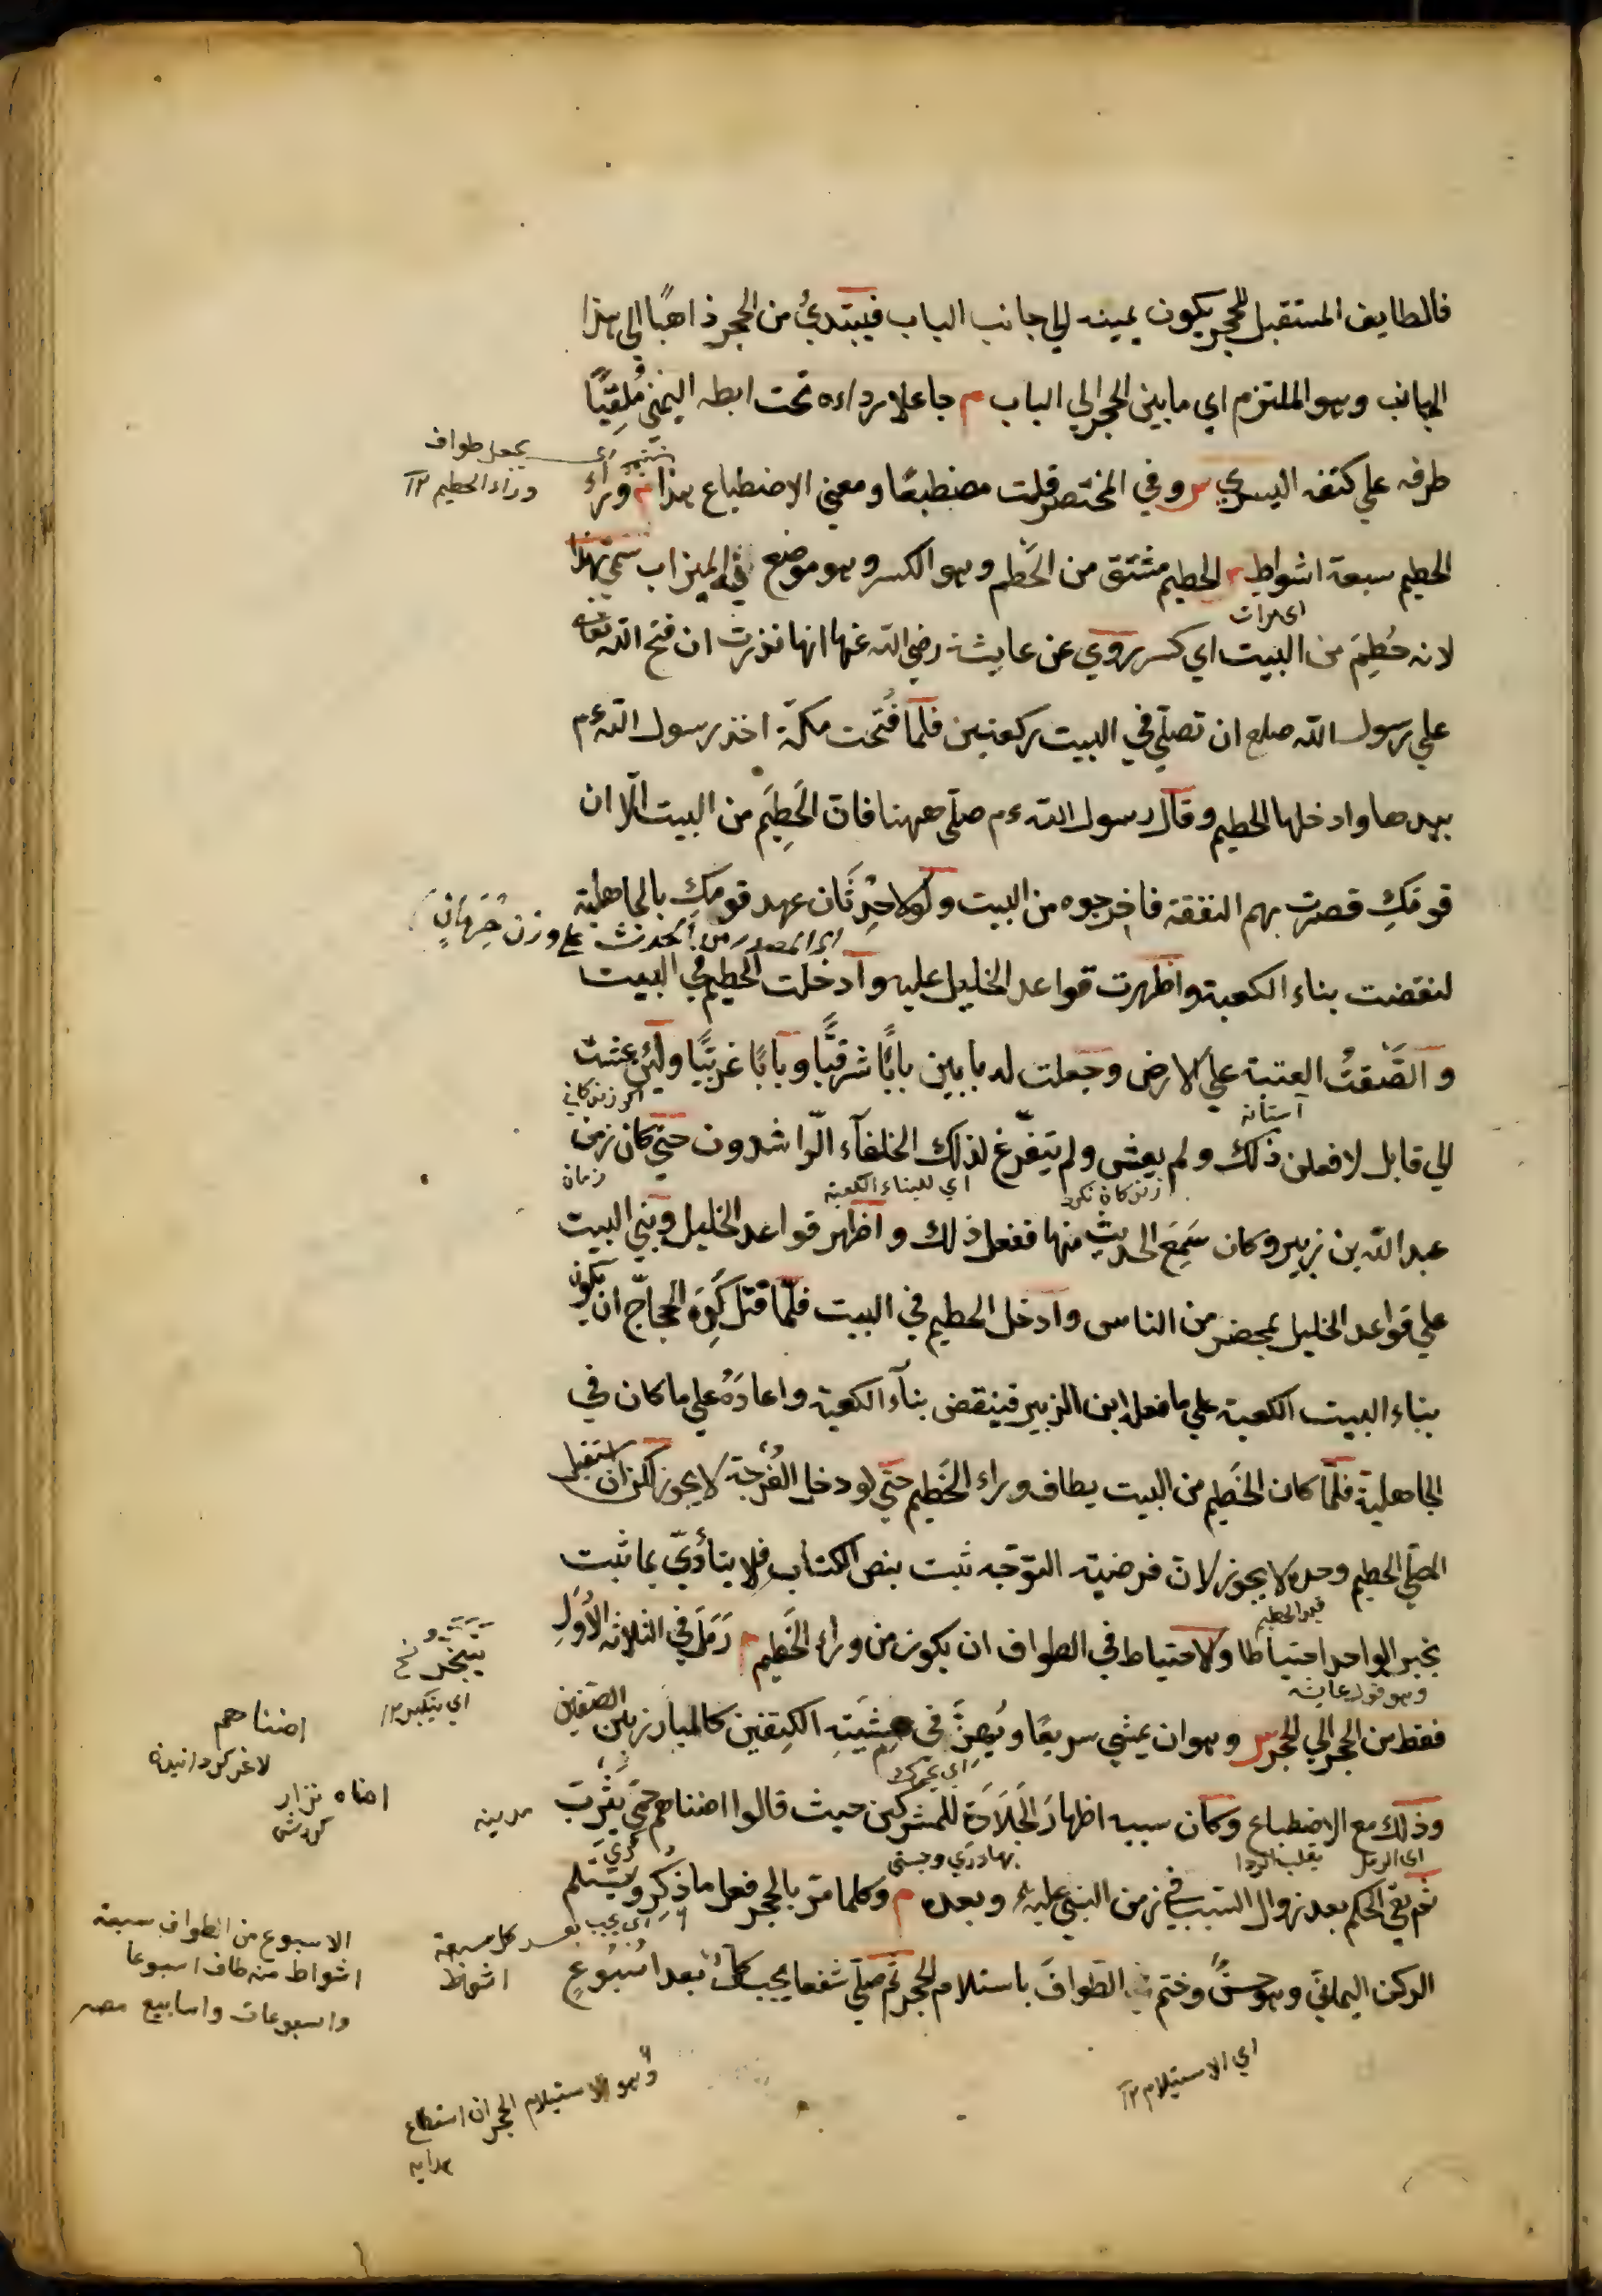 فالطايف المستقبل للحجر يكون يمينه الي جانب الباب فيبتدئ من الحجر ذاهبًا الى هذا
الجانب وهو الملتزم اي ما بين الحجر الي الباب م جاعلا رداءه تحت ابطه اليمنى مُلقِيًا
طرفه علي كتفه اليسري س وفي المختصر قلت مضطبعًا ومعني الاضطباع هذا م وراءَ
اي يجعل طواف
وراء الحطيم ١٢
الحطيم سبعة اشواط س الحطيم مشتق من الحَطْم وهو الكسر وهو موضع فيه الميزاب سمي بهذا
لانه حُطِمَ من البيت اي كسر روي عن عايشة رضي الله عنها انها نذرت ان فتح الله تعالى
علي رسول الله صلعم ان تصلّي في البيت ركعتين فلمّا فُتحت مكّة اخذ رسول الله ءم
بيدها وادخلها الحطيم وقال رسول الله ءم صلّي ههنا فان الحَطِيْم من البيت الّا ان
قومَكِ قصرت بهم النفقة فاخرجوه من البيت ولولا حِدْثَان عهد قومكِ بالجاهلية
علي وزن حِرْمَانٍ
لنقضت بناء الكعبة واظهرت قواعد الخليل عليه وادخلت الحطيم في البيت
والصَقْتُ العتبة علي الارض وجعلت له بابين بابًا شرقيًّا وبابًا غربيًّا ولئن عشت
آستانه
الي قابل لافعلن ذلك ولم يعش ولم يتفرّغ لذلك الخلفآء الرّاشدون حتي كان زمن
زندكاني نكرد
اي للبناء الكعبة
زمان
عبد الله بن زبير وكان سَمِعَ الحديث منها ففعل ذلك واظهر قواعد الخليل وبني البيت
علي قواعد الخليل بمحضر من الناس وادخل الحطيم في البيت فلمّا قتل كَرِهَ الحجاجّ ان يكون
بناء البيت الكعبة علي ما فعله ابن الزبير فينقض بنآء الكعبة واعادَهُ علي ما كان في
الجاهلية فلمّا كان الحَطِيم من البيت يطاف وراء الحَطِيم حتي لو دخل الفُرجة لا يجوز لكن ان استقبل
المصلّي الحطيم وحده لا يجوز لان فرضية التوجّه ثبت بنص الكتاب فلا يتأدّي بما ثبت
بخبر الواحد احتياطا والاحتياط في الطواف ان يكون من وراء الحَطِيم م رَمَلَ في الثلاثة الأُوَلِ
وهو قول عايشه
فقط من الحجر الي الحجر س وهو ان يمشي سريعًا ويُهِزَّ في مِشْيَتِهِ الكتفين كالمبارز بين الصّفين
يتبختر نخ
اي يتكبر ١٢
اي يحرك
وذلك مع الاضطباع وكان سببه اظهارَ الجَلَادَة للمشركين حيث قالوا اضناهم حمّي يَثْرِب
مدينه
اضناهم
لاغر كردانيده
اضناه نزار
كردش
اي الرمل
بهادري وچستي
ثم بقي الحكم بعد زوال السبب في زمن النبي عليه ۴ وبعده م وكلما مرّ بالحجر فعل ما ذُكِرَ ويَسْتَلم
الركن اليمانيَّ وهو حسنٌ وختم الطوافَ باستلام الحجر ثم صلّي شفعا يجب كلَّ بعد اُسْبُوعٍ
اي يجب بعد كل سبعة
اشواط
الاسبوع من الطواف سبعة
اشواط منه طاف اسبوعا
واسبوعات واسابيع مصر
اي الاستيلام ١٢
وهو الاستيلام الحجر ان استطاع
هدايه